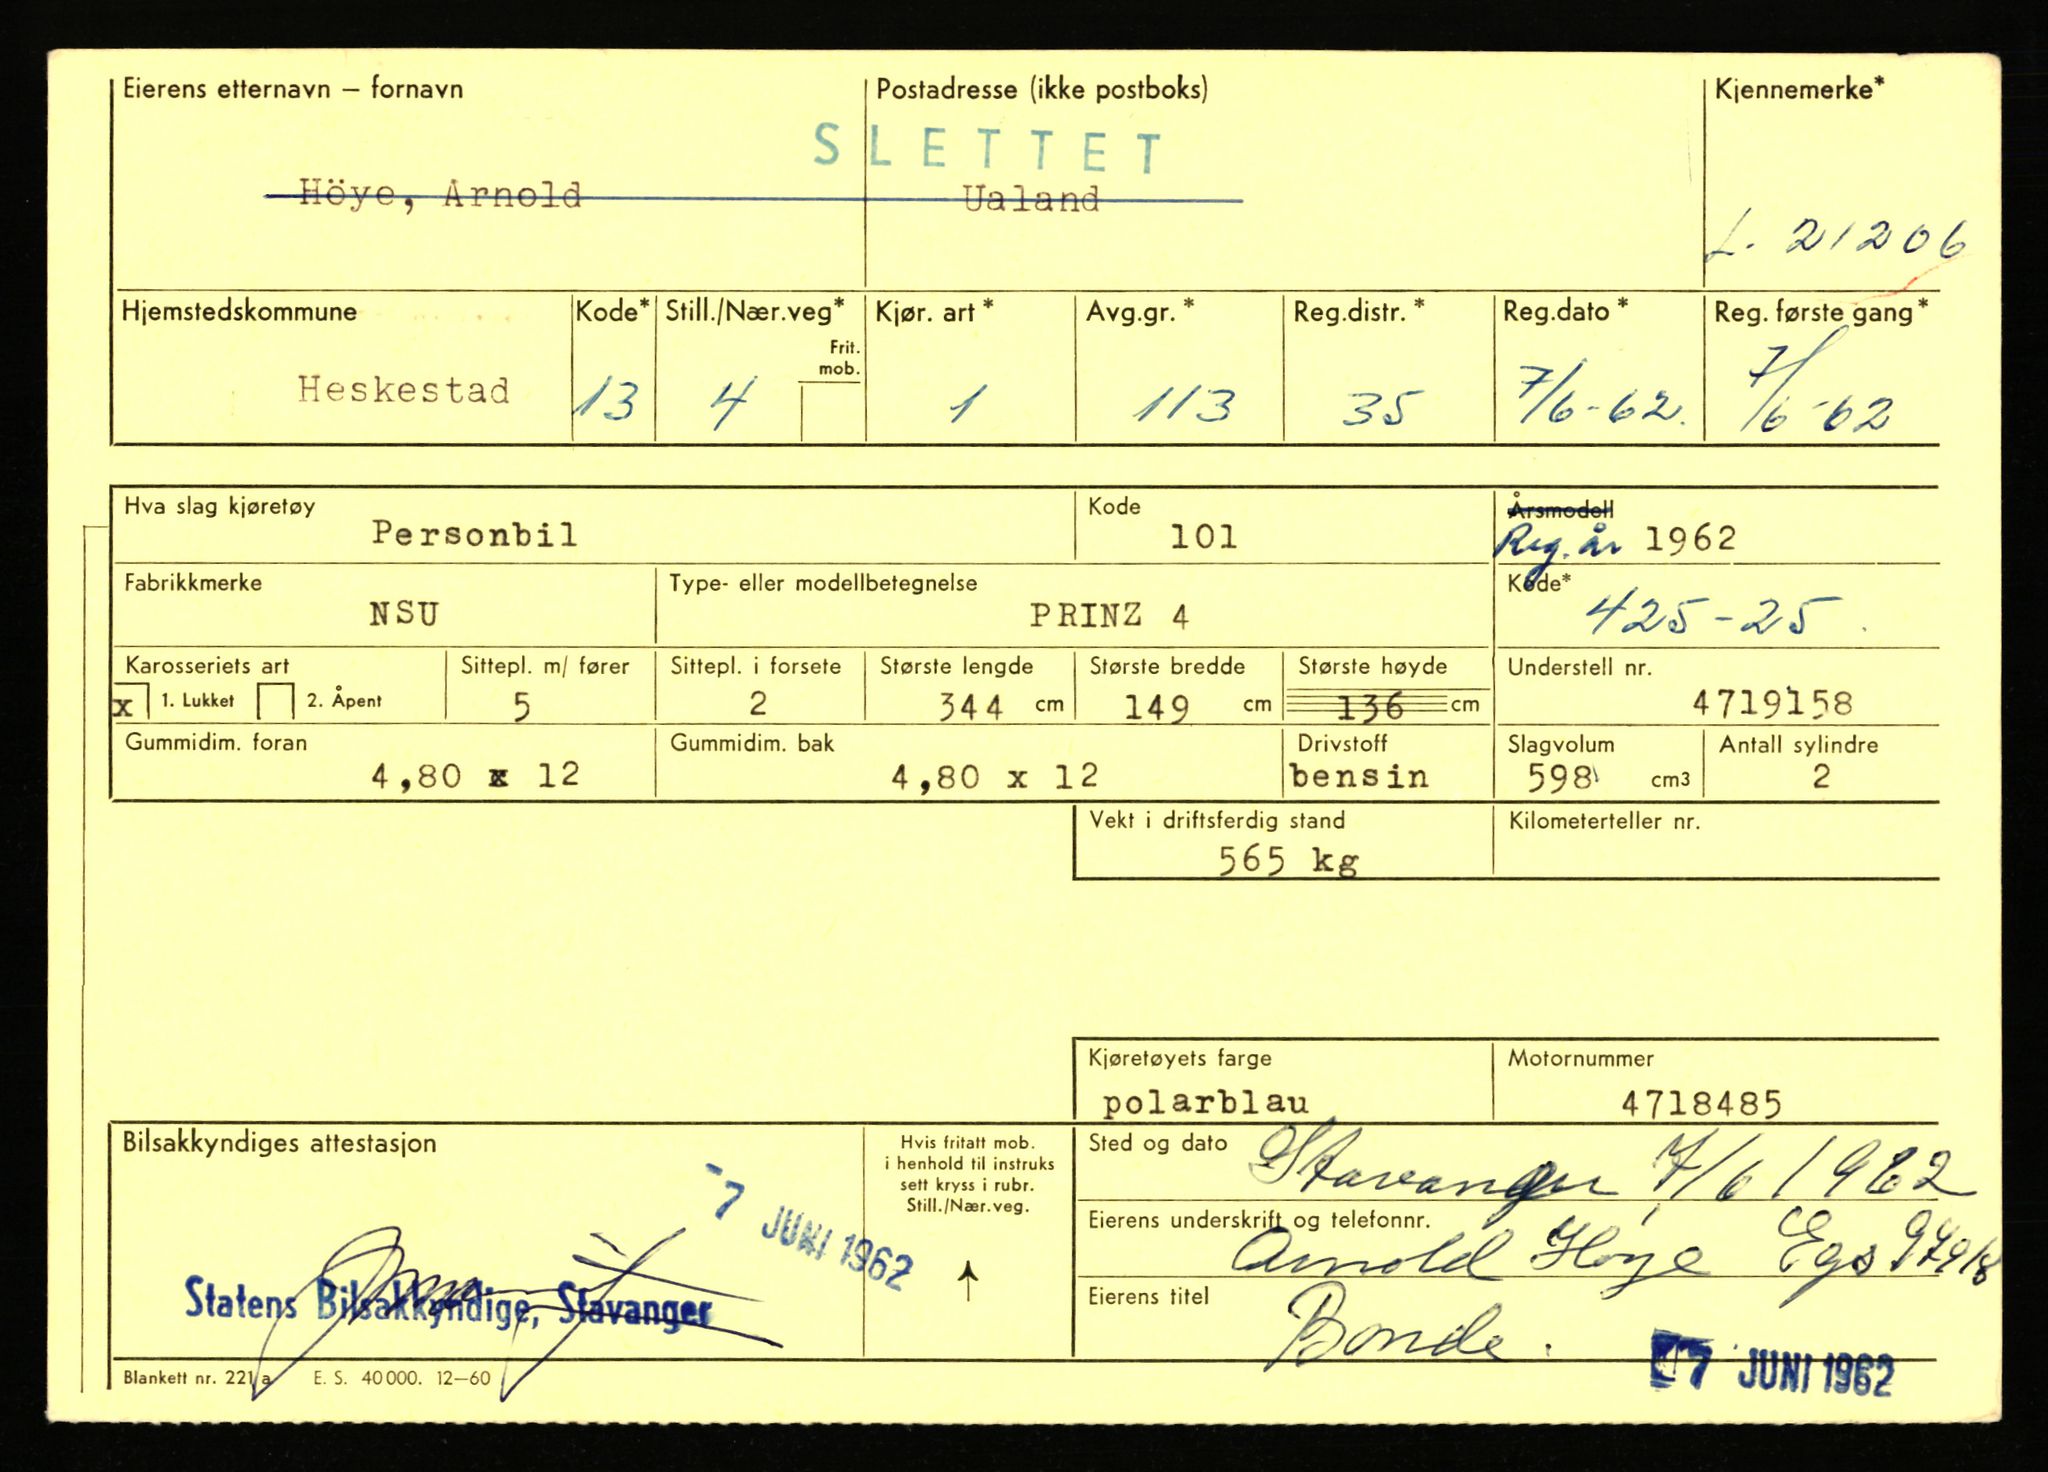 Eierens etternavn – fornavn Postadresse (ikke postboks) Kjennemerke*
SLETTET
Höye, Arnold Ualand
L. 21206
Hjemstedskommune Kode* Still./Nær.veg* Kjør. art* Avg.gr.* Reg.distr.* Reg.dato* Reg. første gang*
Frit.
mob.
Heskestad 13 4 1 113 35 7/6-62. 7/6-62
Hva slag kjøretøy Kode Årsmodell
Personbil 101 Reg. år 1962
Fabrikkmerke Type- eller modellbetegnelse Kode*
NSU PRINZ 4 425-25
Karosseriets art Sittepl. m/ fører Sittepl. i forsete Største lengde Største bredde Største høyde Understell nr.
x 1. Lukket 2. Åpent 5 2 344 cm 149 cm 136 cm 4719158
Gummidim. foran Gummidim. bak Drivstoff Slagvolum Antall sylindre
4,80 x 12 4,80 x 12 bensin 598 cm3 2
Vekt i driftsferdig stand Kilometerteller nr.
565 kg
Kjøretøyets farge Motornummer
polarblau 4718485
Bilsakkyndiges attestasjon Hvis fritatt mob. Sted og dato Stavanger 7/6 1962
i henhold til instruks
sett kryss i rubr.
Still./Nær.veg.
-7 JUNI 1962
Eierens underskrift og telefonnr.
Arnold Høye Egs
Statens Bilsakkyndige, Stavanger
Eierens titel
Bonde.
7 JUNI 1962
Blankett nr. 221 a E. S. 40 000. 12–60